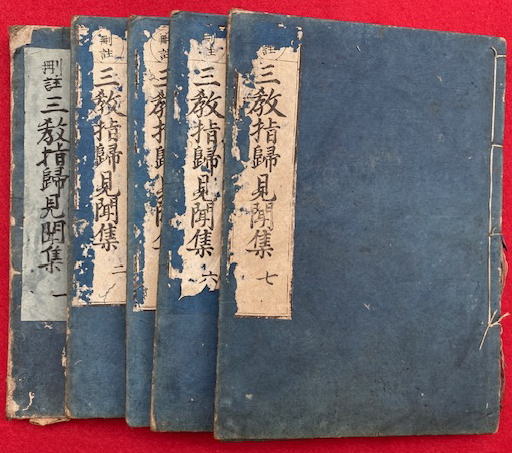 刪註
三教指歸見聞集 一
刪註
三教指歸見聞集 二
刪註
三教指歸
刪註
三教指歸見聞集 六
刪註
三教指歸見聞集 七